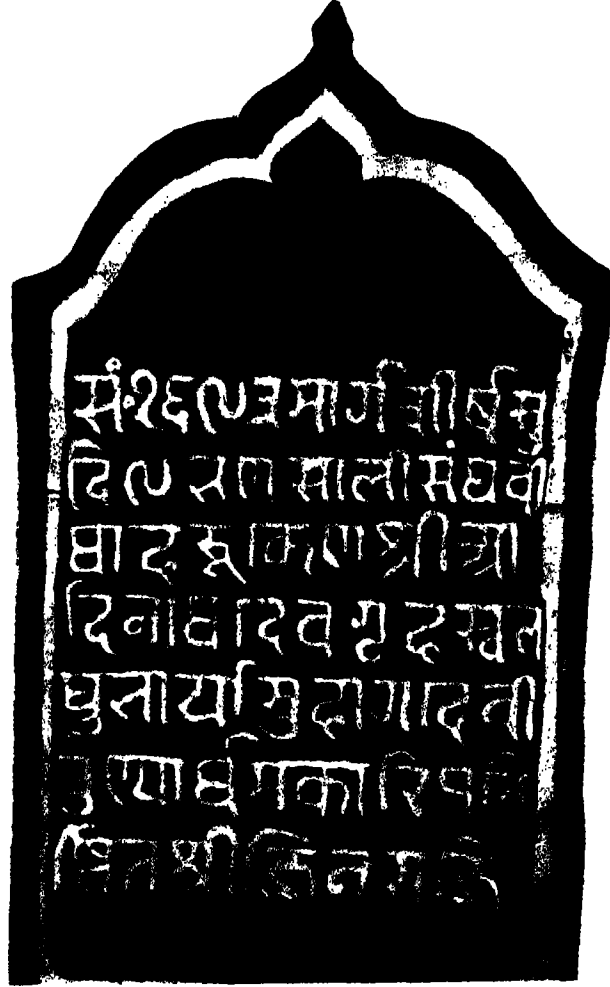 सं॰१६९३ मार्गशीर्ष सु
दि ९ भणसाली संघवी
थाहरूकेण श्री आ
दिनाथदेवगृह स्वल
घुभार्या सुहागदेवी
पुण्यार्थमकारि प्रति
ष्ठितं श्रीजिन